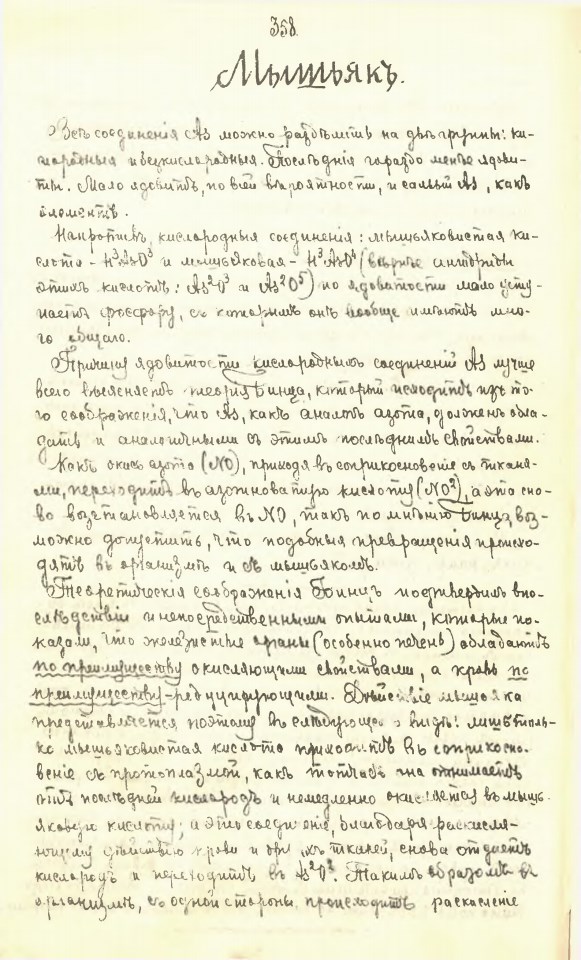 358.
Мышьякъ.
Всѣ соединенія As можно раздѣлить на двѣ группы: ки-
слородныя и безкислородныя. Послѣднія гораздо менѣе ядови-
ты. Мало ядовитъ, по всей вѣроятности, и самый As, какъ
элементъ.
Напротивъ, кислородныя соединенія: мышьяковистая ки-
слота - H³AsO³ и мышьяковая - H³AsO⁴ (вѣрнѣе ангидриды
этихъ кислотъ: As²O³ и As²O⁵) по ядовитости мало усту-
паетъ фосфору, съ которымъ онѣ вообще имѣютъ мно-
го общаго.
Причину ядовитости кислородныхъ соединеній As лучше
всего выясняетъ теорія Бинца, который исходитъ изъ то-
го соображенія, что As, какъ аналогъ азота, долженъ обла-
дать и аналогичными съ этимъ послѣднимъ свойствами.
Какъ окись азота (NO), приходя въ соприкосновеніе съ тканя-
ми, переходитъ въ азотноватую кислоту (NO²), а эта сно-
ва возстановляется въ NO, такъ по мнѣнію Бинца, воз-
можно допустить, что подобныя превращенія происхо-
дятъ въ организмѣ и съ мышьякомъ.
Теоретическія соображенія Бинцъ подтвердилъ впо-
слѣдствіи и непосредственными опытами, которые по-
казали, что железистые органы (особенно печень) обладаютъ
по преимуществу окисляющими свойствами, а кровь по
преимуществу - редуцирующими. Дѣйствіе мышьяка
представляется поэтому въ слѣдующемъ видѣ: лишь толь-
ко мышьяковистая кислота приходитъ въ соприкосно-
веніе съ протоплазмой, какъ тотчасъ она отнимаетъ
отъ послѣдней кислородъ и немедленно окисляется въ мышь-
яковую кислоту; а это соединеніе, благодаря раскисля-
ющему дѣйствію крови и тканей, снова отдаетъ
кислородъ и переходитъ въ As²O³. Такимъ образомъ въ
организмѣ, съ одной стороны, происходитъ раскисленіе